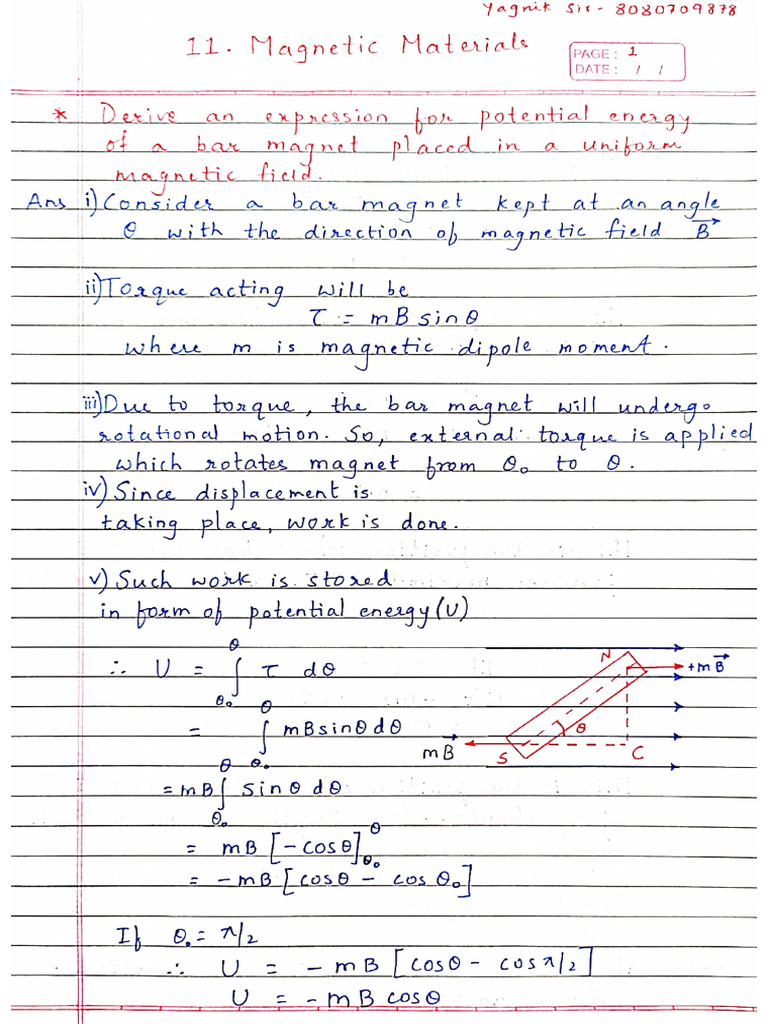 Yagnik Sir - 8080709878
11. Magnetic Materials
PAGE: 1
DATE: / /
* Derive an expression for potential energy
of a bar magnet placed in a uniform
magnetic field.
Ans i) Consider a bar magnet kept at an angle
θ with the direction of magnetic field B⃗
ii) Torque acting will be
τ = mB sinθ
where m is magnetic dipole moment.
iii) Due to torque, the bar magnet will undergo
rotational motion. So, external torque is applied
which rotates magnet from θ₀ to θ.
iv) Since displacement is
taking place, work is done.
v) Such work is stored
in form of potential energy (U)
∴ U = ∫_θ₀^θ τ dθ
= ∫_θ₀^θ mBsinθdθ
= mB ∫_θ₀^θ sinθdθ
= mB [-cosθ]_θ₀^θ
= -mB [cosθ - cosθ₀]
N
+mB⃗
θ
mB⃗
S
C
If θ₀ = π/2
∴ U = -mB [cosθ - cosπ/2]
U = -mB cosθ